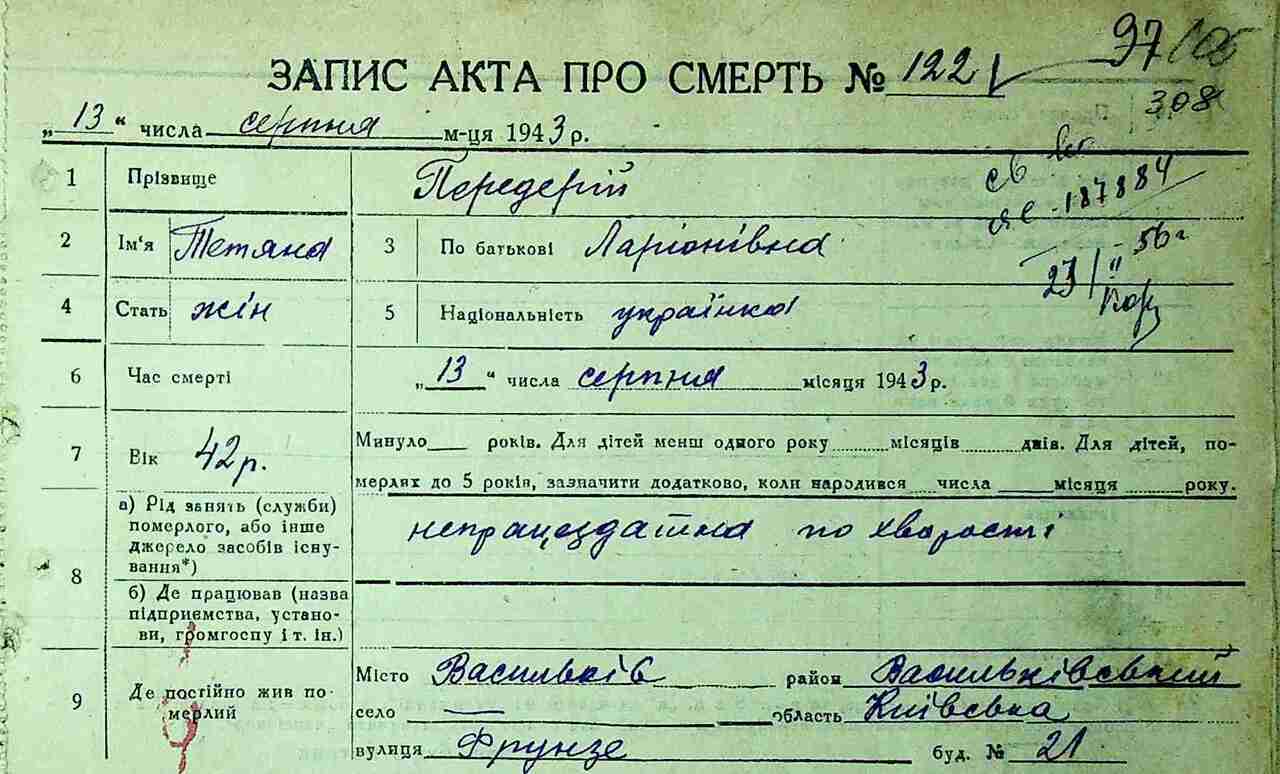 97
ЗАПИС АКТА ПРО СМЕРТЬ № 122
308
„13“ числа серпня м-ця 1943 р.
1 Прізвище Передерій
св
ЯЄ-187884
2 Ім'я Тетяна 3 По батькові Ларіонівна
23/II-56 г
4 Стать жін 5 Національність українка
6 Час смерті „13“ числа серпня місяця 1943 р.
7 Вік 42 р. Минуло років. Для дітей менш одного року місяців днів. Для дітей, по-
мерлих до 5 років, зазначити додатково, коли народився числа місяця року.
8 а) Рід занять (служби)
померлого, або інше
джерело засобів існу-
вання*)
непрацездатна по хворості
б) Де працював (назва
підприємства, устано-
ви, громгоспу і т. ін.)
9 Де постійно жив по-
мерлий
Місто Васильків район Васильківський
село — область Київська
вулиця Фрунзе буд. № 21